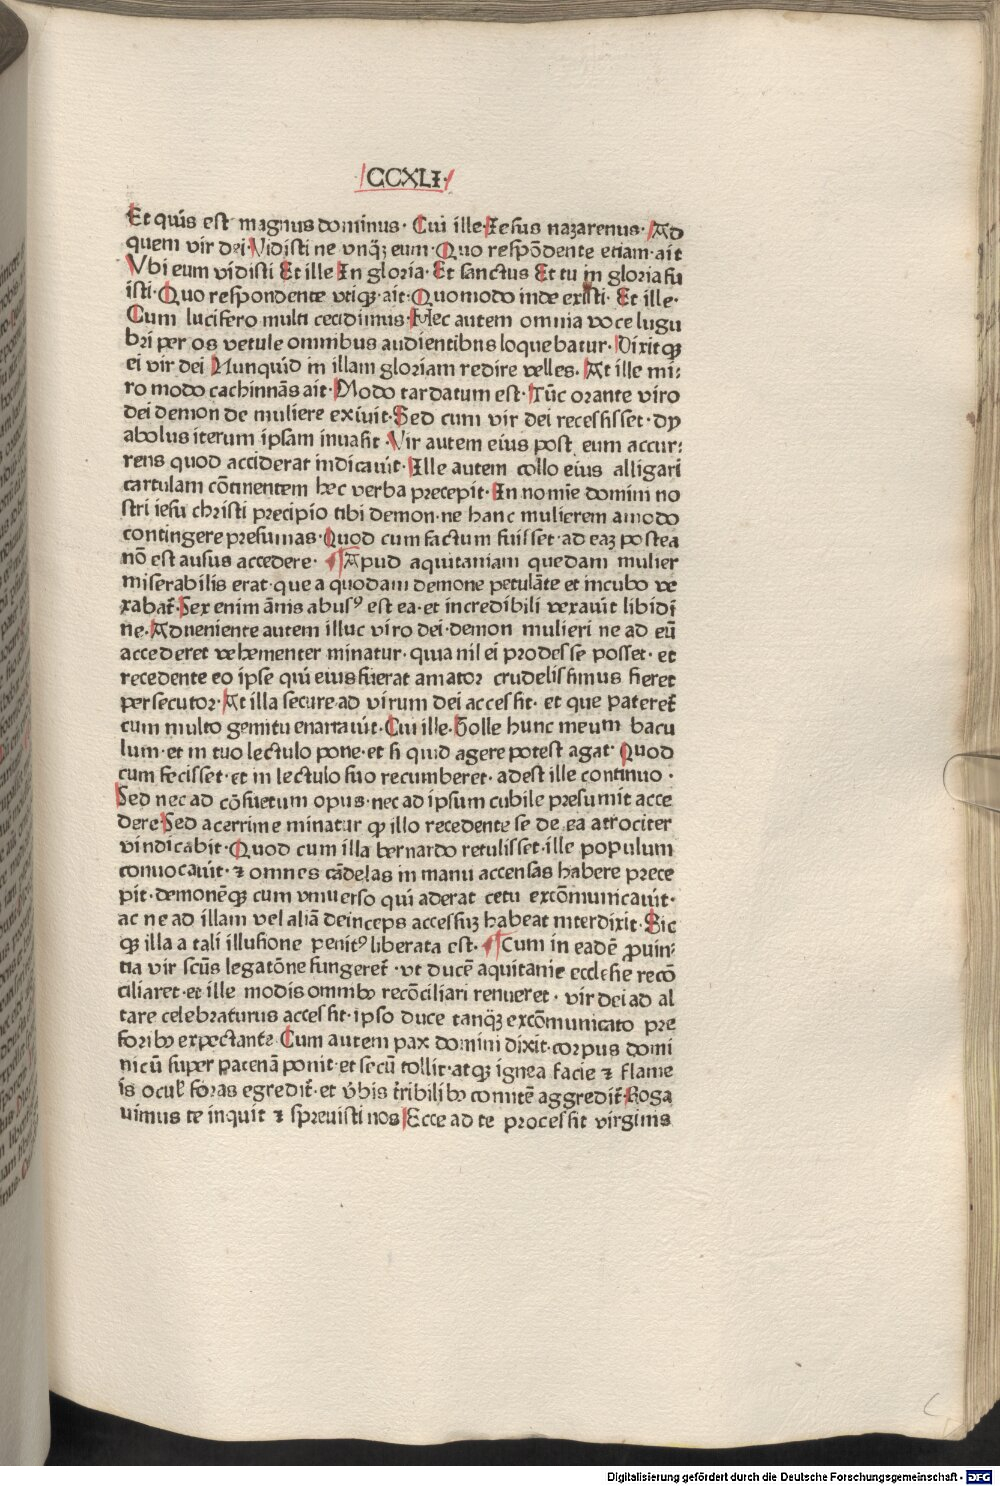 CCXLI·
Et quis est magnus dominus· Cui ille Iesus nazarenus· Ad
quem vir dei· Vidisti ne vnqꝫ eum· Quo respōdente etiam· ait
Vbi eum vidisti Et ille In gloria· Et sanctus Et tu in gloria fu
isti· Quo respondente vtiqꝫ· ait· Quomodo inde existi· Et ille·
Cum lucifero multi cecidimus· Hec autem omnia voce lugu
bri per os vetule omnibus audientibns loquebatur· Dixitqꝫ
ei vir dei Nunquid in illam gloriam redire velles· At ille mi:
ro modo cachinnās ait· Modo tardatum est· Tūc orante viro
dei demon de muliere exiuit· Sed cum vir dei recessisset· dy
abolus iterum ipsam inuasit· Vir autem eius post eum accur:
rens quod acciderat indicauit· Ille autem collo eius alligari
cartulam cōtinentem hec verba precepit· In nomīe domini no
stri iesu christi precipio tibi demon· ne hanc mulierem amodo
contingere presumas· Quod cum factum fuisset· ad eaꝫ postea
nō est ausus accedere· ¶ Apud aquitaniam quedam mulier
miserabilis erat· que a quodam demone petulāte et incubo ve
xabat̄· Sex enim ānis abusꝰ est ea· et incredibili vexauit libidī
ne· Adueniente autem illuc viro dei· demon mulieri ne ad eū
accederet vehementer minatur· quia nil ei prodesse posset· et
recedente eo ipse qui eius fuerat amator crudelissimus fieret
persecutor· At illa secure ad virum dei accessit· et que pateret̄
cum multo gemitu enarrauit· Cui ille· Tolle hunc meum bacu
lum· et in tuo lectulo pone· et si quid agere potest agat· Quod
cum fecisset· et in lectulo suo recumberet· adest ille continuo·
Sed nec ad cōsuetum opus· nec ad ipsum cubile presumit acce
dere· Sed acerrime minatur qꝫ illo recedente se de ea atrociter
vindicabit· Quod cum illa bernardo retulisset· ille populum
conuocauit· ⁊ omnes cādelas in manu accensas habere prece
pit· demonēqꝫ cum vniuerso qui aderat cetu excōmunicauit·
ac ne ad illam vel aliā deinceps accessuꝫ habeat interdixit· Sic
qꝫ illa a tali illusione penitꝰ liberata est· ¶ Cum in eadē ꝓuin:
tia vir scūs legatōne fungeret̄· vt ducē aquitanie ecclesie recō
ciliaret· et ille modis omnibꝫ recōciliari renueret· vir dei ad al
tare celebraturus accessit· ipso duce tanqꝫ excōmunicato pre
foribꝫ expectante· Cum autem pax domini dixit· corpus domi
nicū super patenā ponit· et secū tollit· atqꝫ ignea facie ⁊ flame
is ocul̄ foras egredit̄· et v̄bis t̄ribilibꝫ comitē aggredit̄· Roga
uimus te inquit ⁊ spreuisti nos Ecce ad te processit virginis
Digitalisierung gefördert durch die Deutsche Forschungsgemeinschaft · DFG